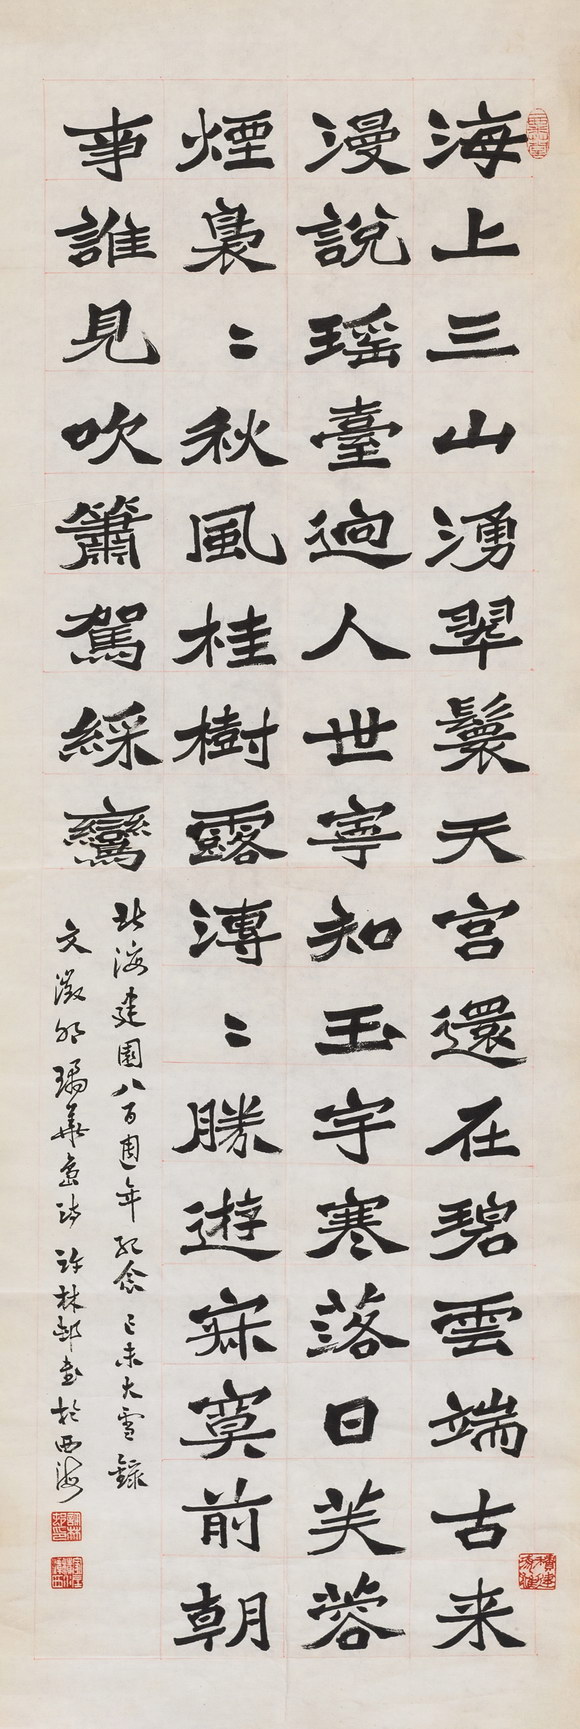 海上三山湧翠鬟天宮還在碧雲端古来
漫說瑶臺迥人世寧知玉宇寒落日芙蓉
煙裊〻秋風桂樹露漙〻勝遊寂寞前朝
事誰見吹簫駕綵鸞
北海建園八百週年紀念己未大雪錄
文徵明瓊華島詩許林邨書於西海